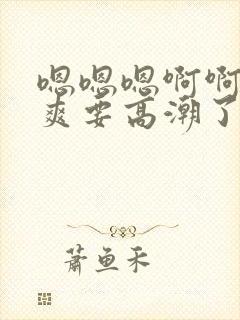 嗯嗯嗯啊啊
爽要高潮了
萧鱼禾